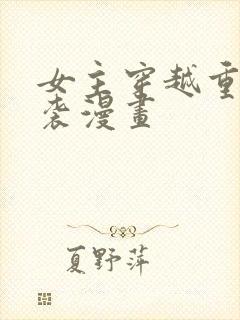 女主穿越重
袭漫畫
夏野萍